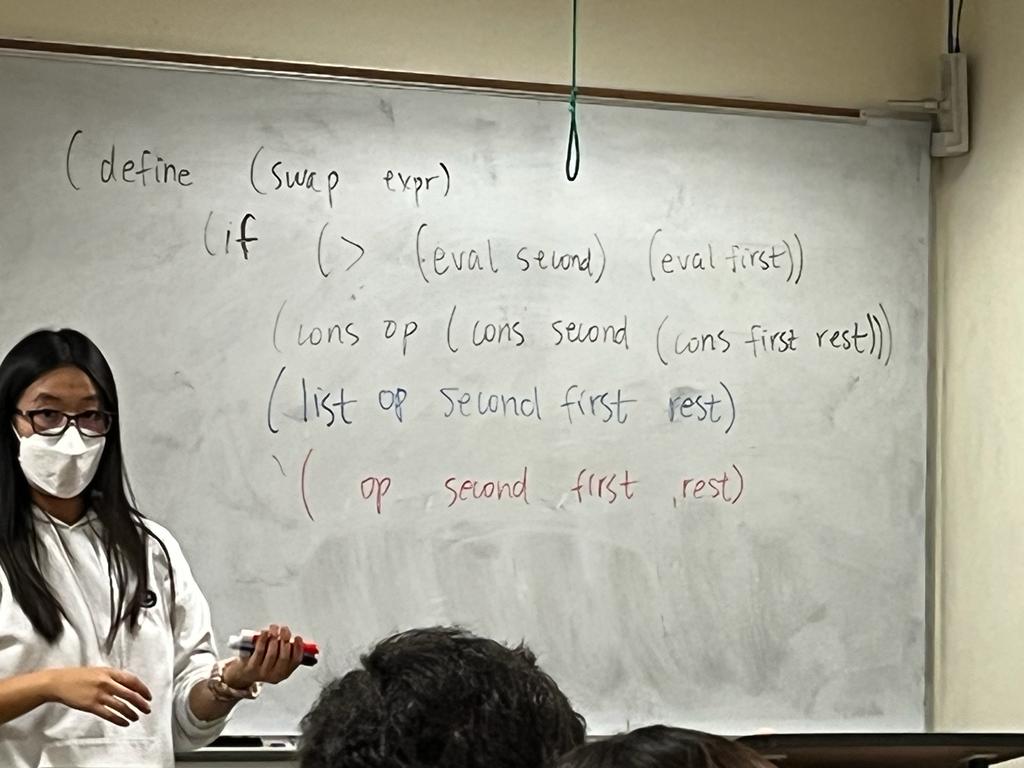 (define (swap expr)
(if (> (eval second) (eval first))
(cons op (cons second (cons first rest)))
(list op second first rest)
`( op second first ,rest)